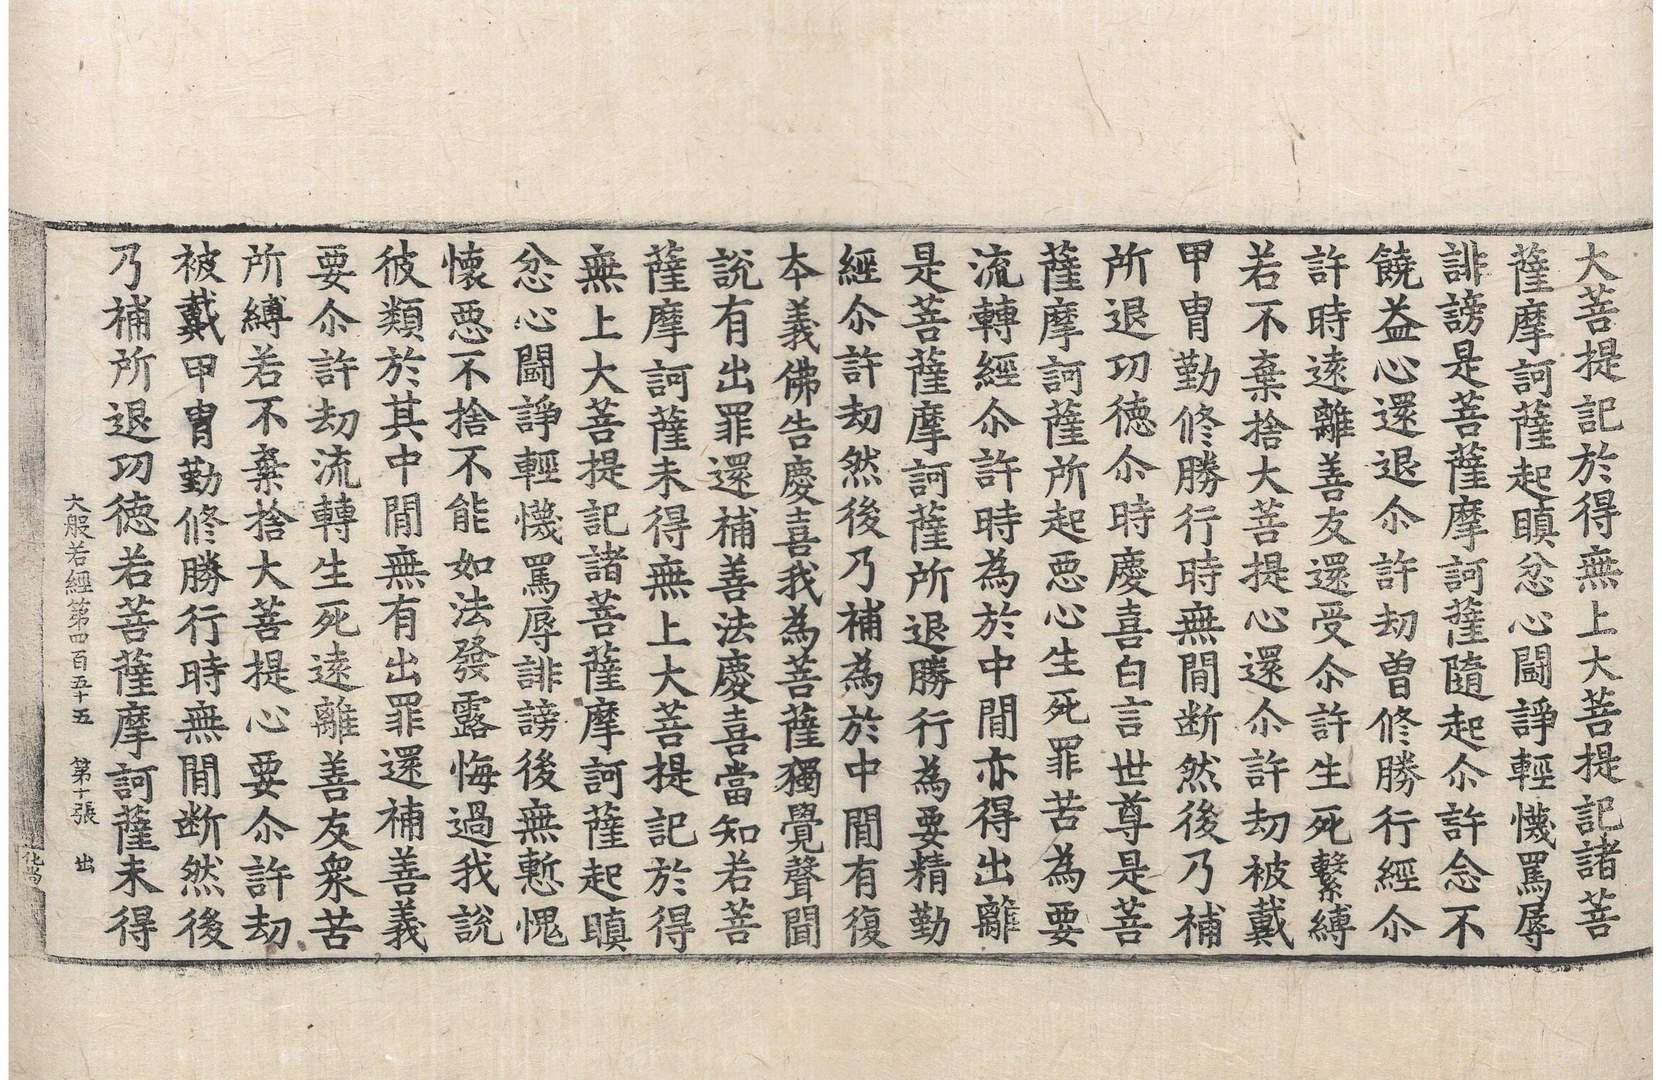 大菩提記於得無上大菩提記諸菩
薩摩訶薩起瞋忿心鬪諍輕懱罵辱
誹謗是菩薩摩訶薩隨起尒許念不
饒益心還退尒許劫曽修勝行經尒
許時逺離善友還受尒許生死繫縛
若不棄捨大菩提心還尒許劫被戴
甲冑勤修勝行時無間断然後乃補
所退功徳尒時慶喜白言世尊是菩
薩摩訶薩所起惡心生死罪苦為要
流轉經尒許時為於中間亦得出離
是菩薩摩訶薩所退勝行為要精勤
經尒許劫然後乃補為於中間有復
夲義佛告慶喜我為菩薩獨覺聲聞
說有出罪還補善法慶喜當知若菩
薩摩訶薩未得無上大菩提記於得
無上大菩提記諸菩薩摩訶薩起瞋
忿心鬪諍輕懱罵辱誹謗後無慙愧
懐惡不捨不能如法發露悔過我說
彼類於其中間無有出罪還補善義
要尒許劫流轉生死逺離善友衆苦
所縛若不棄捨大菩提心要尒許劫
被戴甲冑勤修勝行時無間断然後
乃補所退功徳若菩薩摩訶薩未得
大般若經第四百五十五 第十張 出